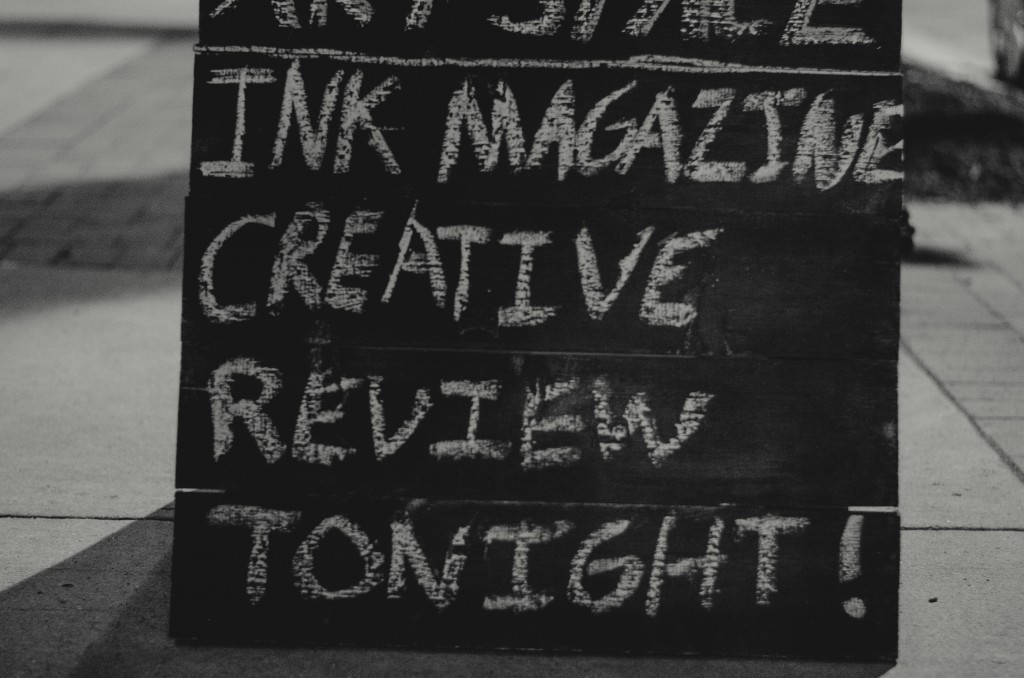 ART SPACE
INK MAGAZINE
CREATIVE
REVIEW
TONIGHT!